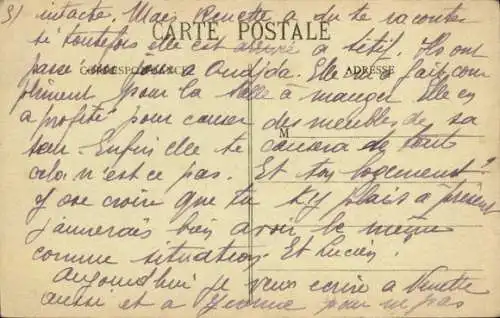 3) intacte. Mais Venette a du te raconter
CARTE POSTALE
si toutefois elle est à Sétif. Ils ont
passé un jour a Oudjda. Elle m'a fait com
CORRESPONDANCE
ADRESSE
pliment pour la salle à manger. Elle en
a profité pour causer des meubles de sa
M
sœur. Enfin elle te causera de tout
cela n'est ce pas. Et ton logement
J'ose croire que tu t'y plais à présent
j'aimerais bien avoir la même
comme situation. Et Lucien.
Aujourd'hui je veux écrire a Venette
aussi et a Jeanne pour ne pas